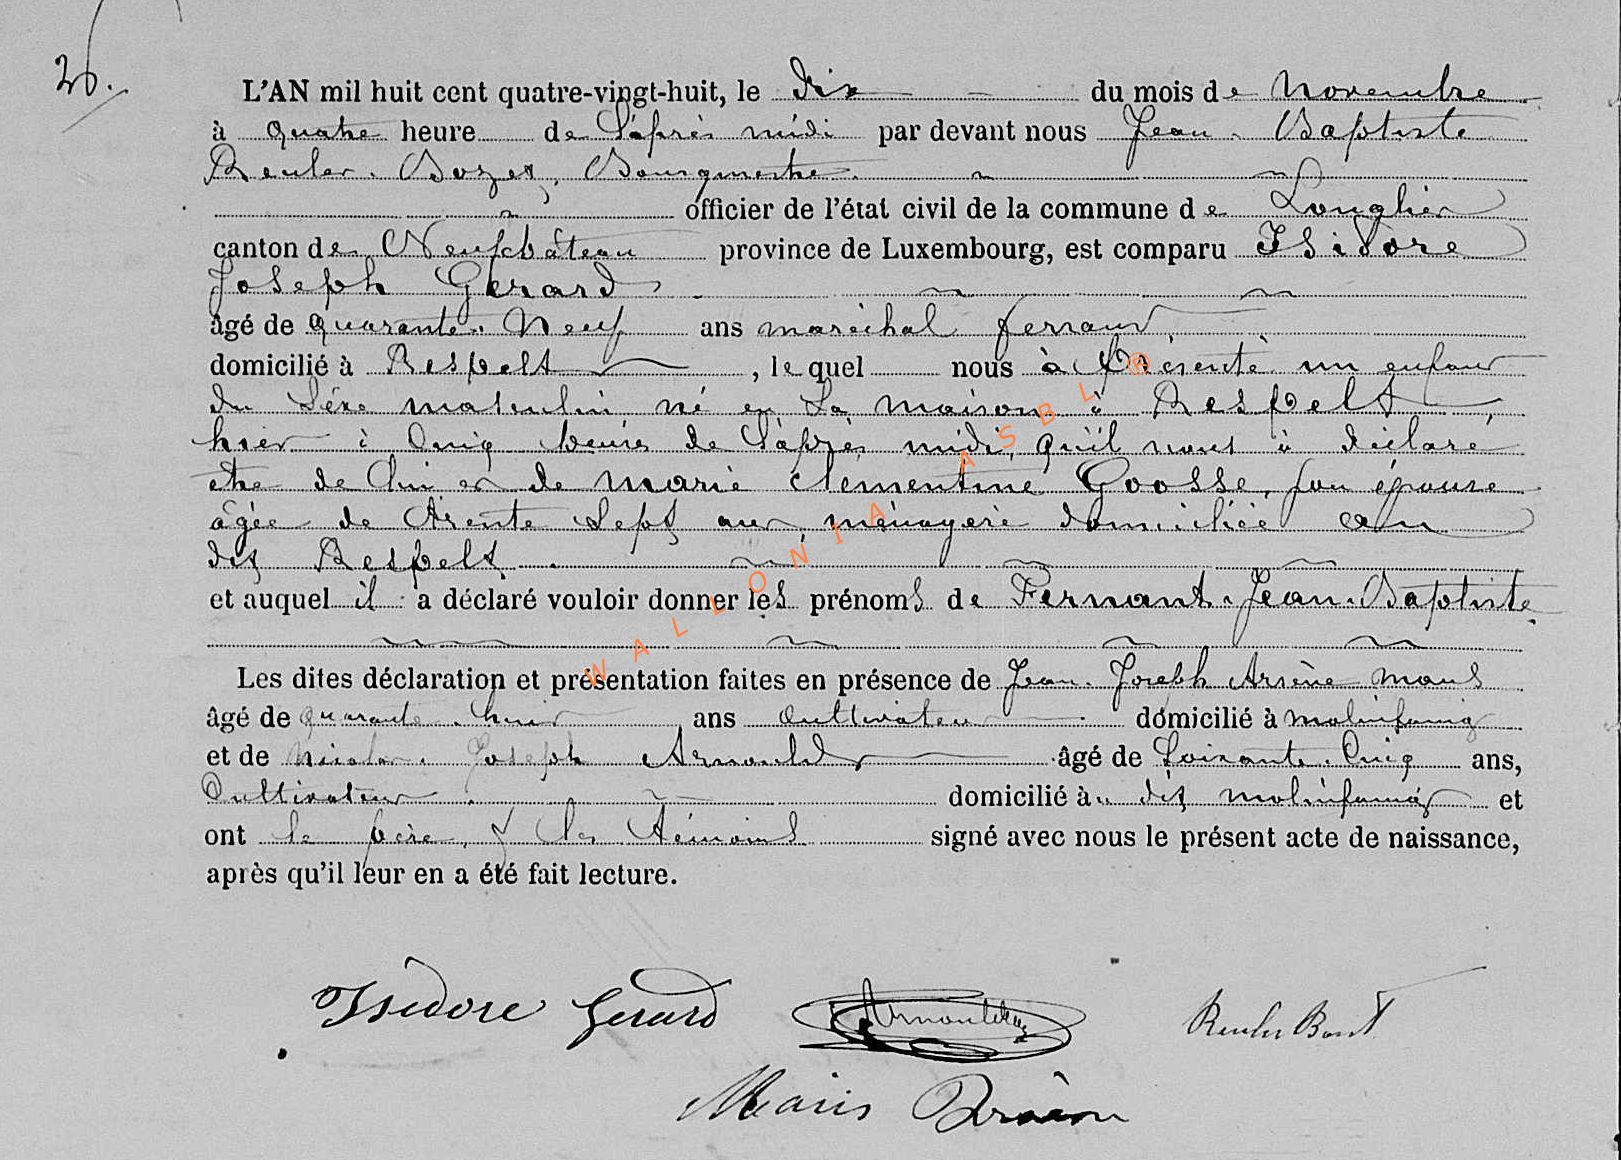 26.
L'AN mil huit cent quatre-vingt-huit, le Dix du mois de Novembre
à quatre heure de l'après midi par devant nous Jean-Baptiste
Reuler-Bozet, Bourgmestre.
officier de l'état civil de la commune de Longlier
canton de Neufchâteau province de Luxembourg, est comparu Isidore
Joseph Gérard
âgé de quarante-Neuf ans maréchal ferrant
domicilié à Respelt, lequel nous à présenté un enfant
du Séxe masculin né en sa maison à Respelt,
hier à Cinq heures de l'après midi, qu'il nous à déclaré
être de lui et de marie Clémentine Goosse, son épouse
âgée de trente Sept ans, ménagère domiciliée au
dit Respelt.
et auquel il a déclaré vouloir donner les prénoms de Fernant-Jean-Baptiste
Les dites déclaration et présentation faites en présence de Jean-Joseph Arsène Maus
âgé de quarante-huit ans Cultivateur domicilié à molinfaing
et de Nicolas-Joseph Arnould âgé de Soixante-Cinq ans,
Cultivateur domicilié au dit molinfaing et
ont le père & les témoins signé avec nous le présent acte de naissance,
après qu'il leur en a été fait lecture.
Isidore Gerard Reuler Bozet
WALLONIA ASBL ®